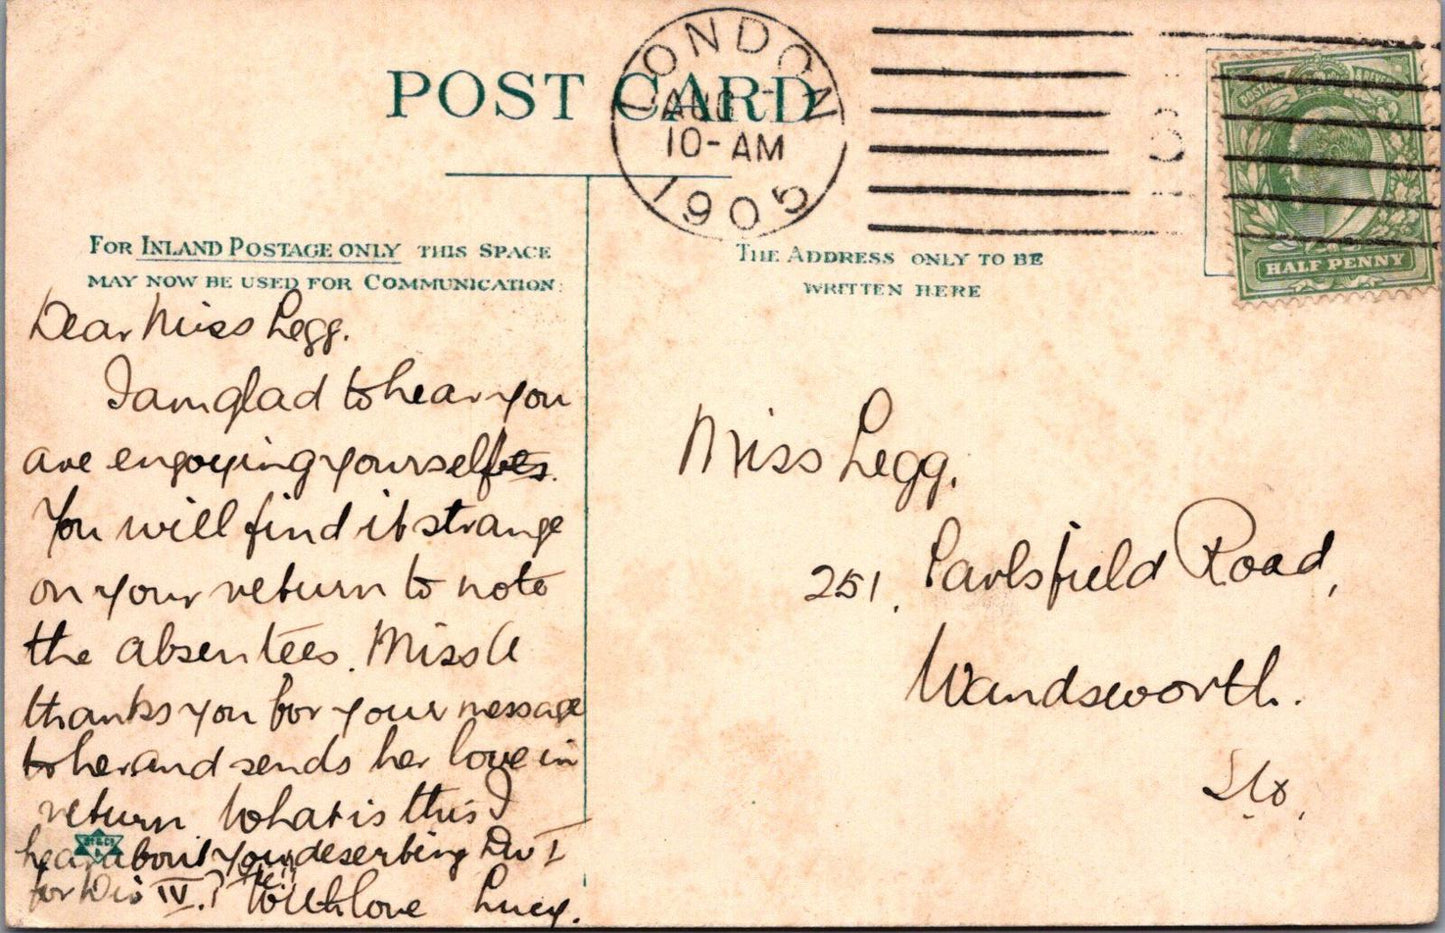 POST CARD
LONDON
AUG
10-AM
1905
HALF PENNY
FOR INLAND POSTAGE ONLY THIS SPACE
MAY NOW BE USED FOR COMMUNICATION:
THE ADDRESS ONLY TO BE
WRITTEN HERE
Dear Miss Legg.
I am glad to hear you
are engoying yourselfes.
You will find it strange
on your return to note
the absentees. Miss A
thanks you for your message
to her and sends her love in
return. What is this I
hear about you deserting Div I
for Div IV.?
With love Lucy.
Miss Legg.
251, Earlsfield Road,
Wandsworth.